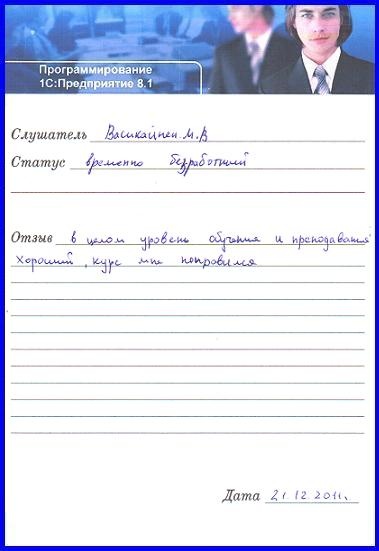 Программирование
1С:Предприятие 8.1
Слушатель Васикайнен М.В
Статус временно безработный
Отзыв в целом уровень обучения и преподавания
хороший, курс мне понравился
Дата 21.12.2011.